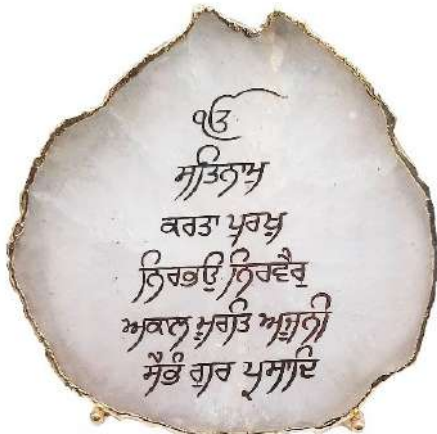 ੴ
ਸਤਿਨਾਮੁ
ਕਰਤਾ ਪੁਰਖੁ
ਨਿਰਭਉ ਨਿਰਵੈਰੁ
ਅਕਾਲ ਮੂਰਤਿ ਅਜੂਨੀ
ਸੈਭੰ ਗੁਰ ਪ੍ਰਸਾਦਿ